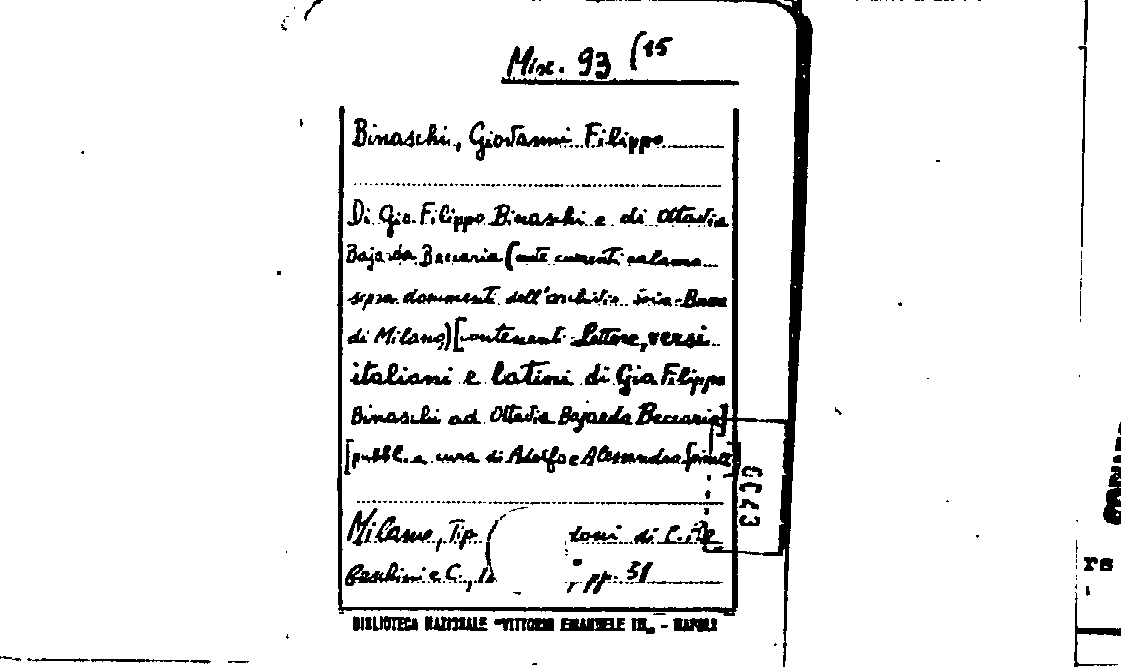 Misc. 93 (15
Binaschi, Giovanni Filippo
Di Gio. Filippo Binaschi e di Ottavia
Bajarda Beccaria (note currenti calamo
sopra documenti dell'archivio
di Milano) [contenenti lettere, versi
italiani e latini di Gio Filippo
Binaschi ad Ottavia Bajarda Beccaria]
[pubbl. a cura di Adolfo e Alessandro
Milano, Tip toni di C. Re
beschini e C., 1 , pp. 31
0043
BIBLIOTECA NAZIONALE "VITTORIO EMANUELE III" - NAPOLI
rs